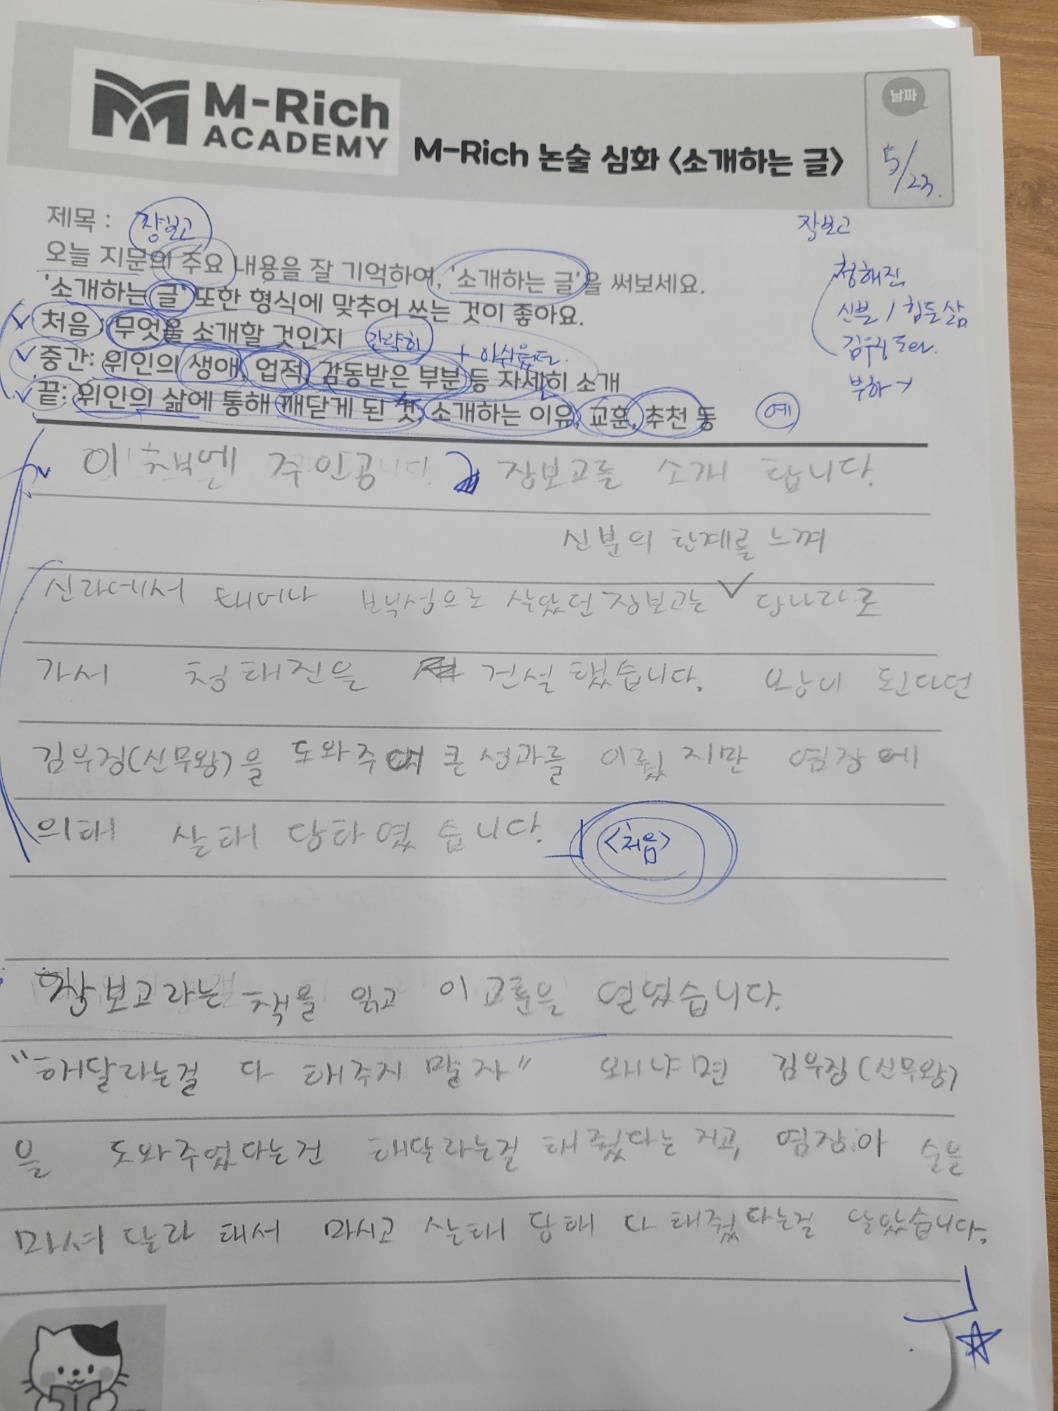 M-Rich
ACADEMY
M-Rich 논술 심화 <소개하는 글>
날짜
5/23.
제목 : 장보고
오늘 지문의 주요 내용을 잘 기억하여, '소개하는 글'을 써보세요.
'소개하는 글' 또한 형식에 맞추어 쓰는 것이 좋아요.
처음 : 무엇을 소개할 것인지 간략히
+ 아쉬움점.
중간: 위인의 생애, 업적, 감동받은 부분 등 자세히 소개
끝: 위인의 삶에 통해 깨닫게 된 것, 소개하는 이유, 교훈, 추천 등
예
장보고
청해진
신분 / 힘든 삶
김우징 도와.
부하
이 책엔 주인공 장보고를 소개 합니다.
신분의 한계를 느껴
신라에서 태어나 백성으로 살았던 장보고는 당나라로
가서 청해진을 건설 했습니다. 왕이 된다던
김우징(신무왕)을 도와주어 큰 성과를 이뤘지만 염장에
의해 살해 당하였습니다.
<처음>
장보고라는 책을 읽고 이 교훈을 얻었습니다.
"해달라는걸 다 해주지 말자" 왜냐면 김우징(신무왕)
을 도와주었다는건 해달라는걸 해줬다는 거고, 염장이 술을
마셔 달라 해서 마시고 살해 당해 다 해줬다는걸 알았습니다.